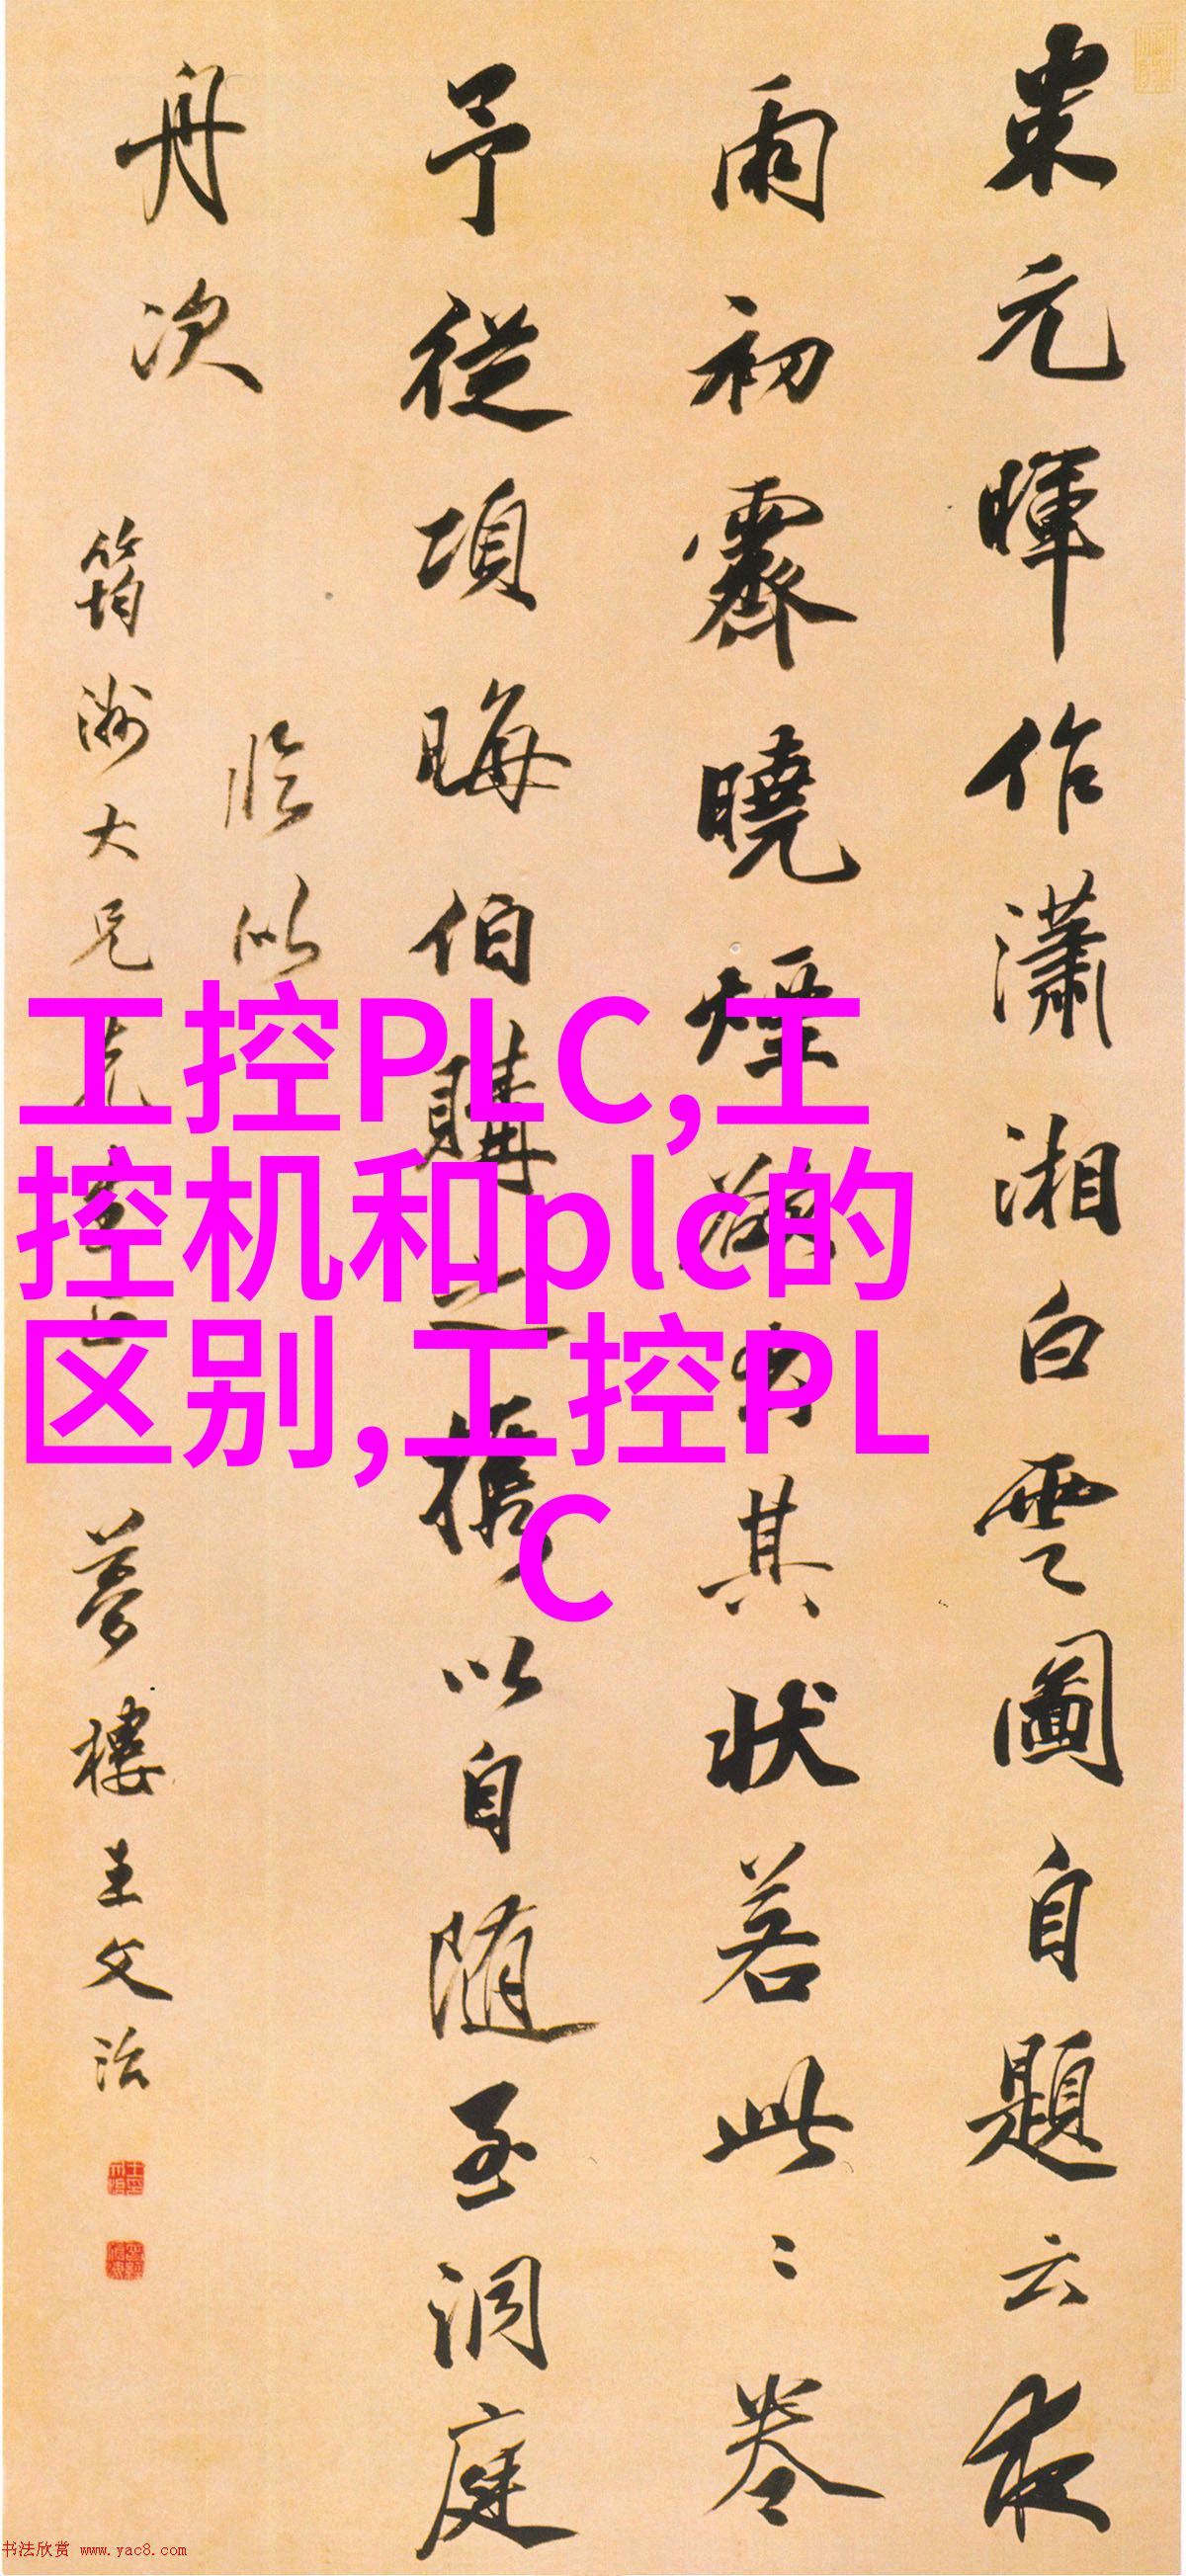 米元暉作瀟湘白雲圖自題云夜
雨初霽曉煙欲出其狀若此〻卷
予從項晦伯購之攜以自随至洞庭
舟次
臨以
筠洲大兄
夢樓王文治
工控PLC,工
控机和plc的
区别,工控PL
C
书法欣赏 www.yac8.com